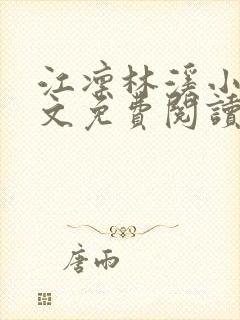 江凜林溪小
文免費閱讀
唐雨